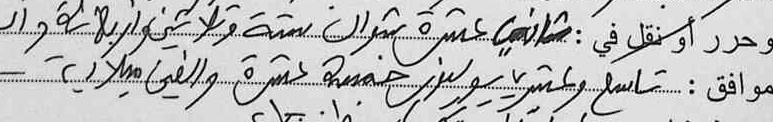 وحرر أو نقل في : ثاني عشرة شوال ستة وثلاثين وأربعمائة و
موافق : تاسع وعشرين يوليوز خمسة عشرة والفين ميلادية